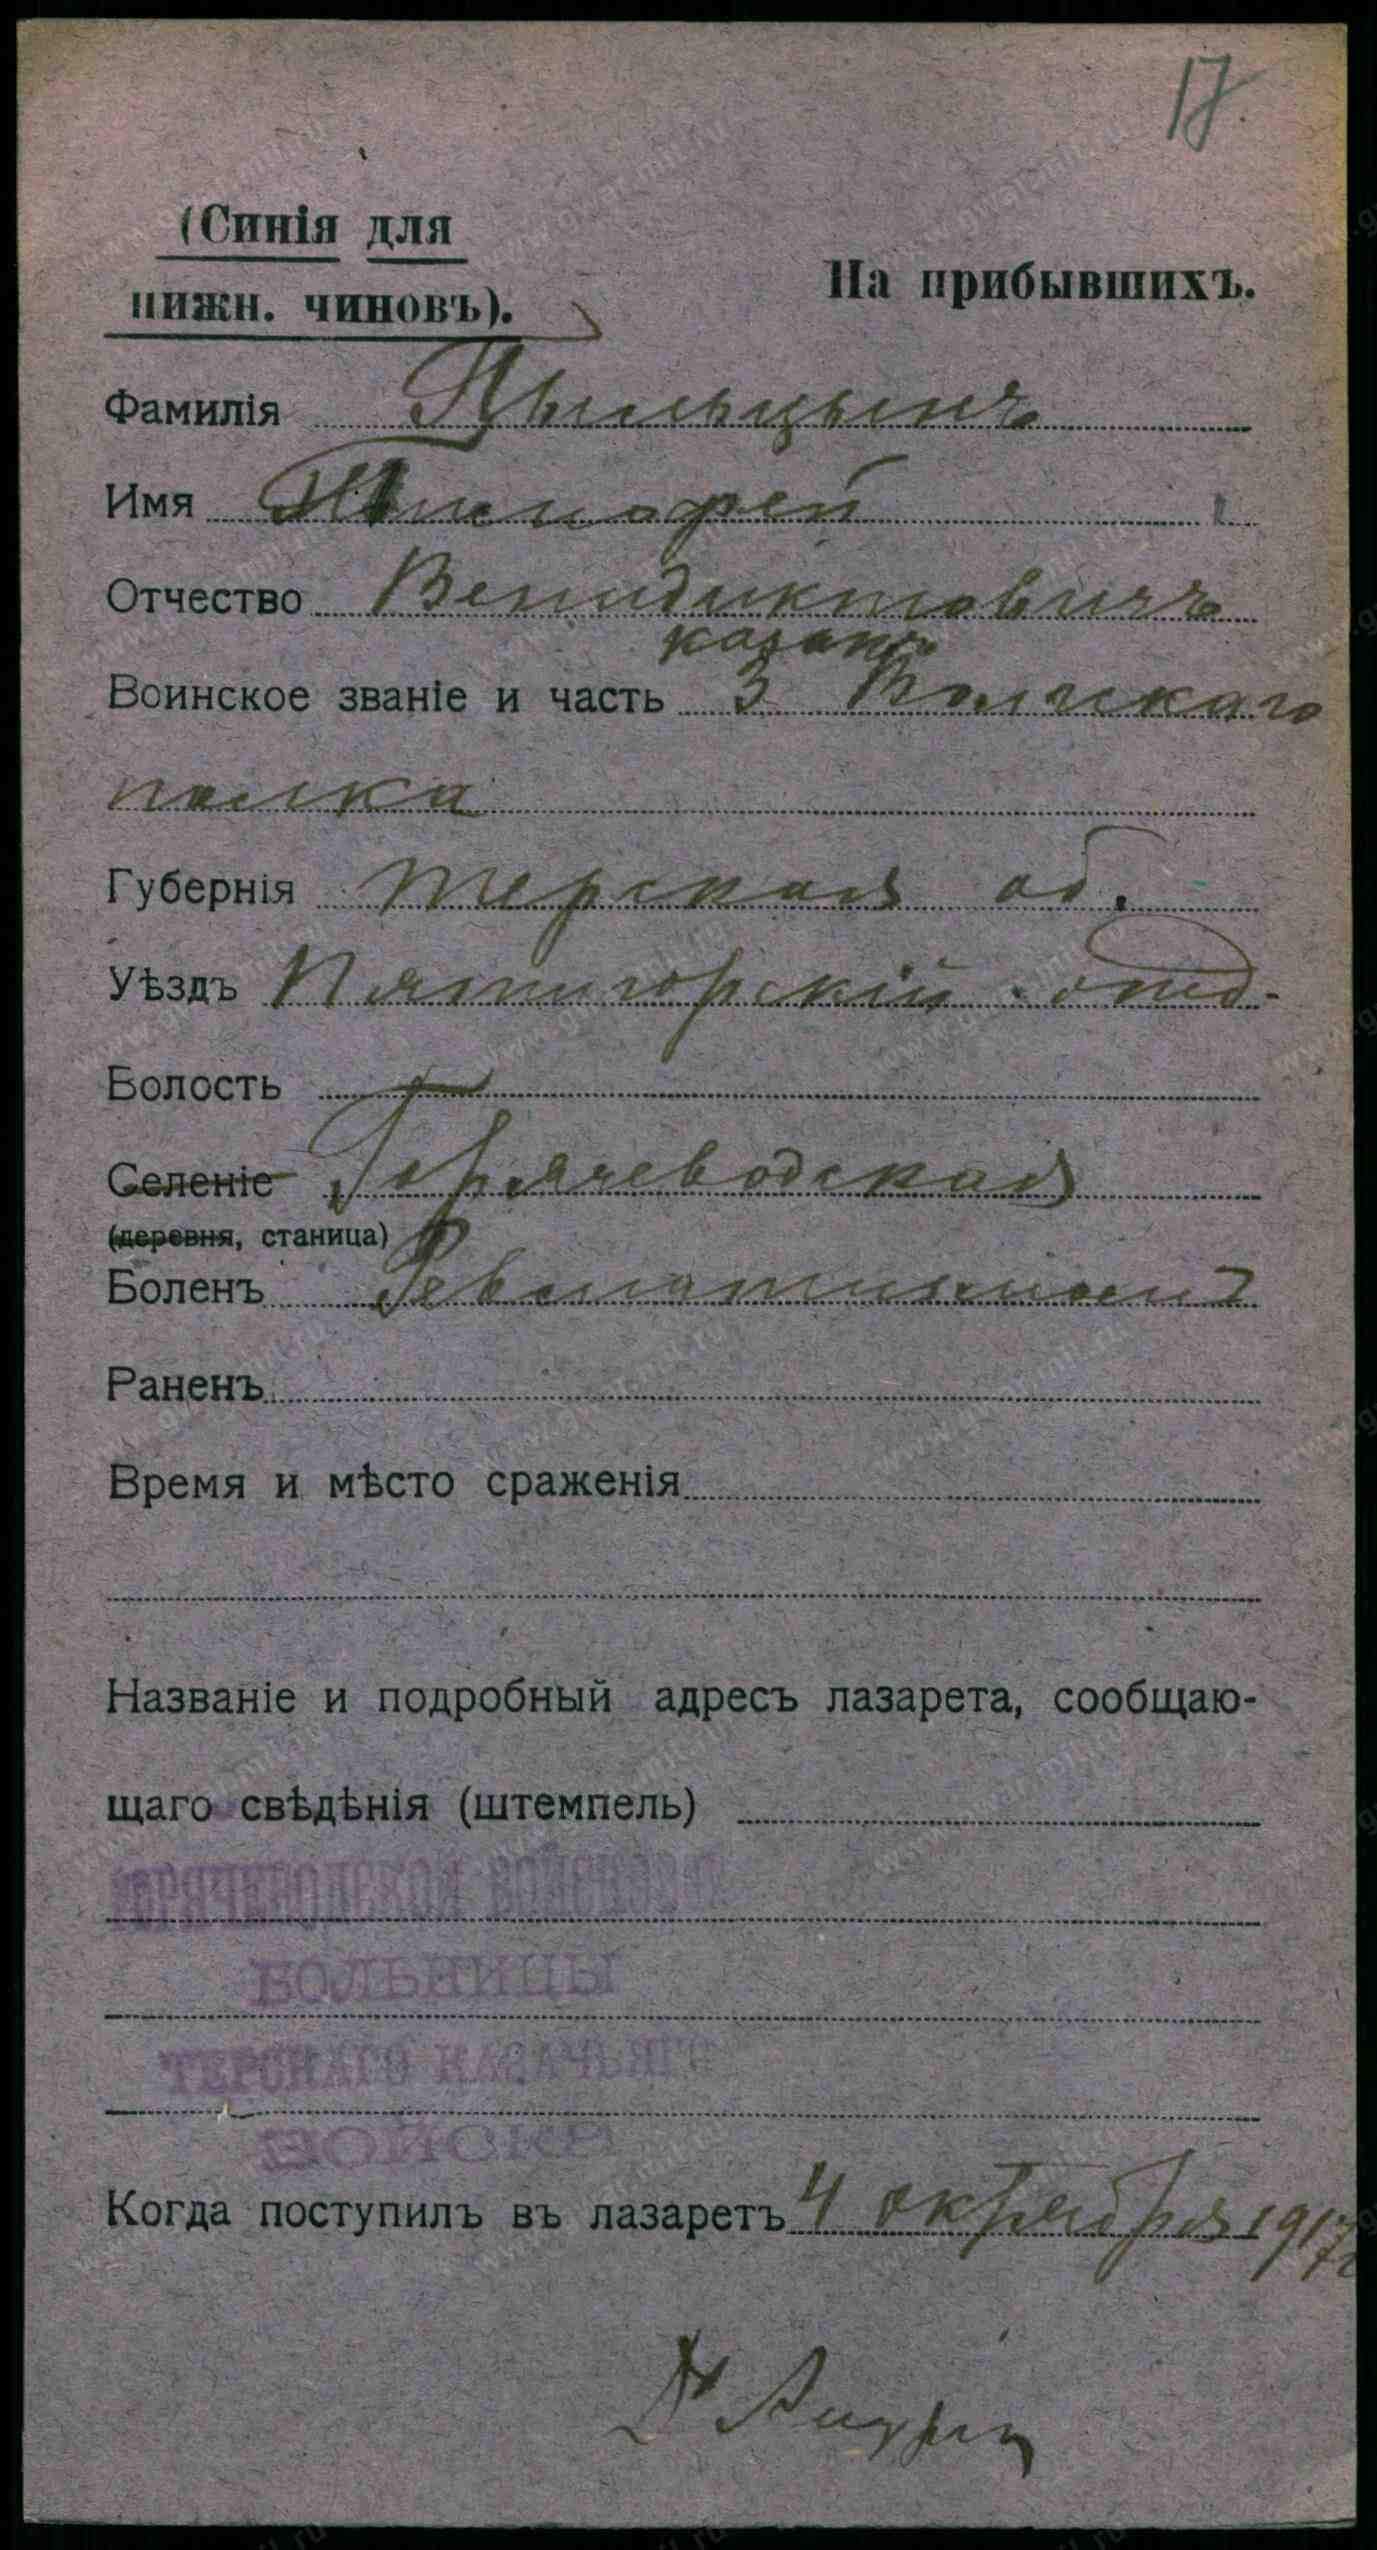 17.
(Синія для
нижн. чиновъ).
На прибывшихъ.
Фамилія Цыльцынъ
Имя Тимофей
Отчество Венидиктовичъ
казакъ
Воинское званіе и часть 3 Волгскаго
полка
Губернія терская об.
Уѣздъ Пятигорскій отд.
Волость
Селеніе Горячеводская
(деревня, станица)
Боленъ Ревматизмомъ
Раненъ
Время и мѣсто сраженія
Названіе и подробный адресъ лазарета, сообщаю-
щаго свѣдѣнія (штемпель)
ГОРЯЧЕВОДСКОЙ ВОЙСКОВОЙ
БОЛЬНИЦЫ
ТЕРСКАГО КАЗАЧЬЯГО
ВОЙСКА
Когда поступилъ въ лазаретъ 4 октября 1917